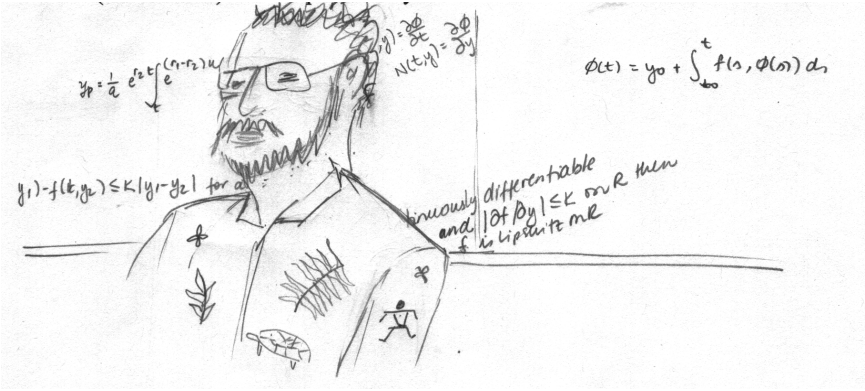 ,y) = ∂Φ/∂t
N(t,y) = ∂Φ/∂y
y_p = 1/a e^{r_2 t} ∫_t e^{(r_1-r_2)u
Φ(t) = y_0 + ∫_{t_0}^{t} f(s, Φ(s)) ds
y_1) - f(t, y_2) ≤ K |y_1 - y_2| for a
tinuously differentiable
and |∂f/∂y| ≤ K on R then
f is Lipschitz on R